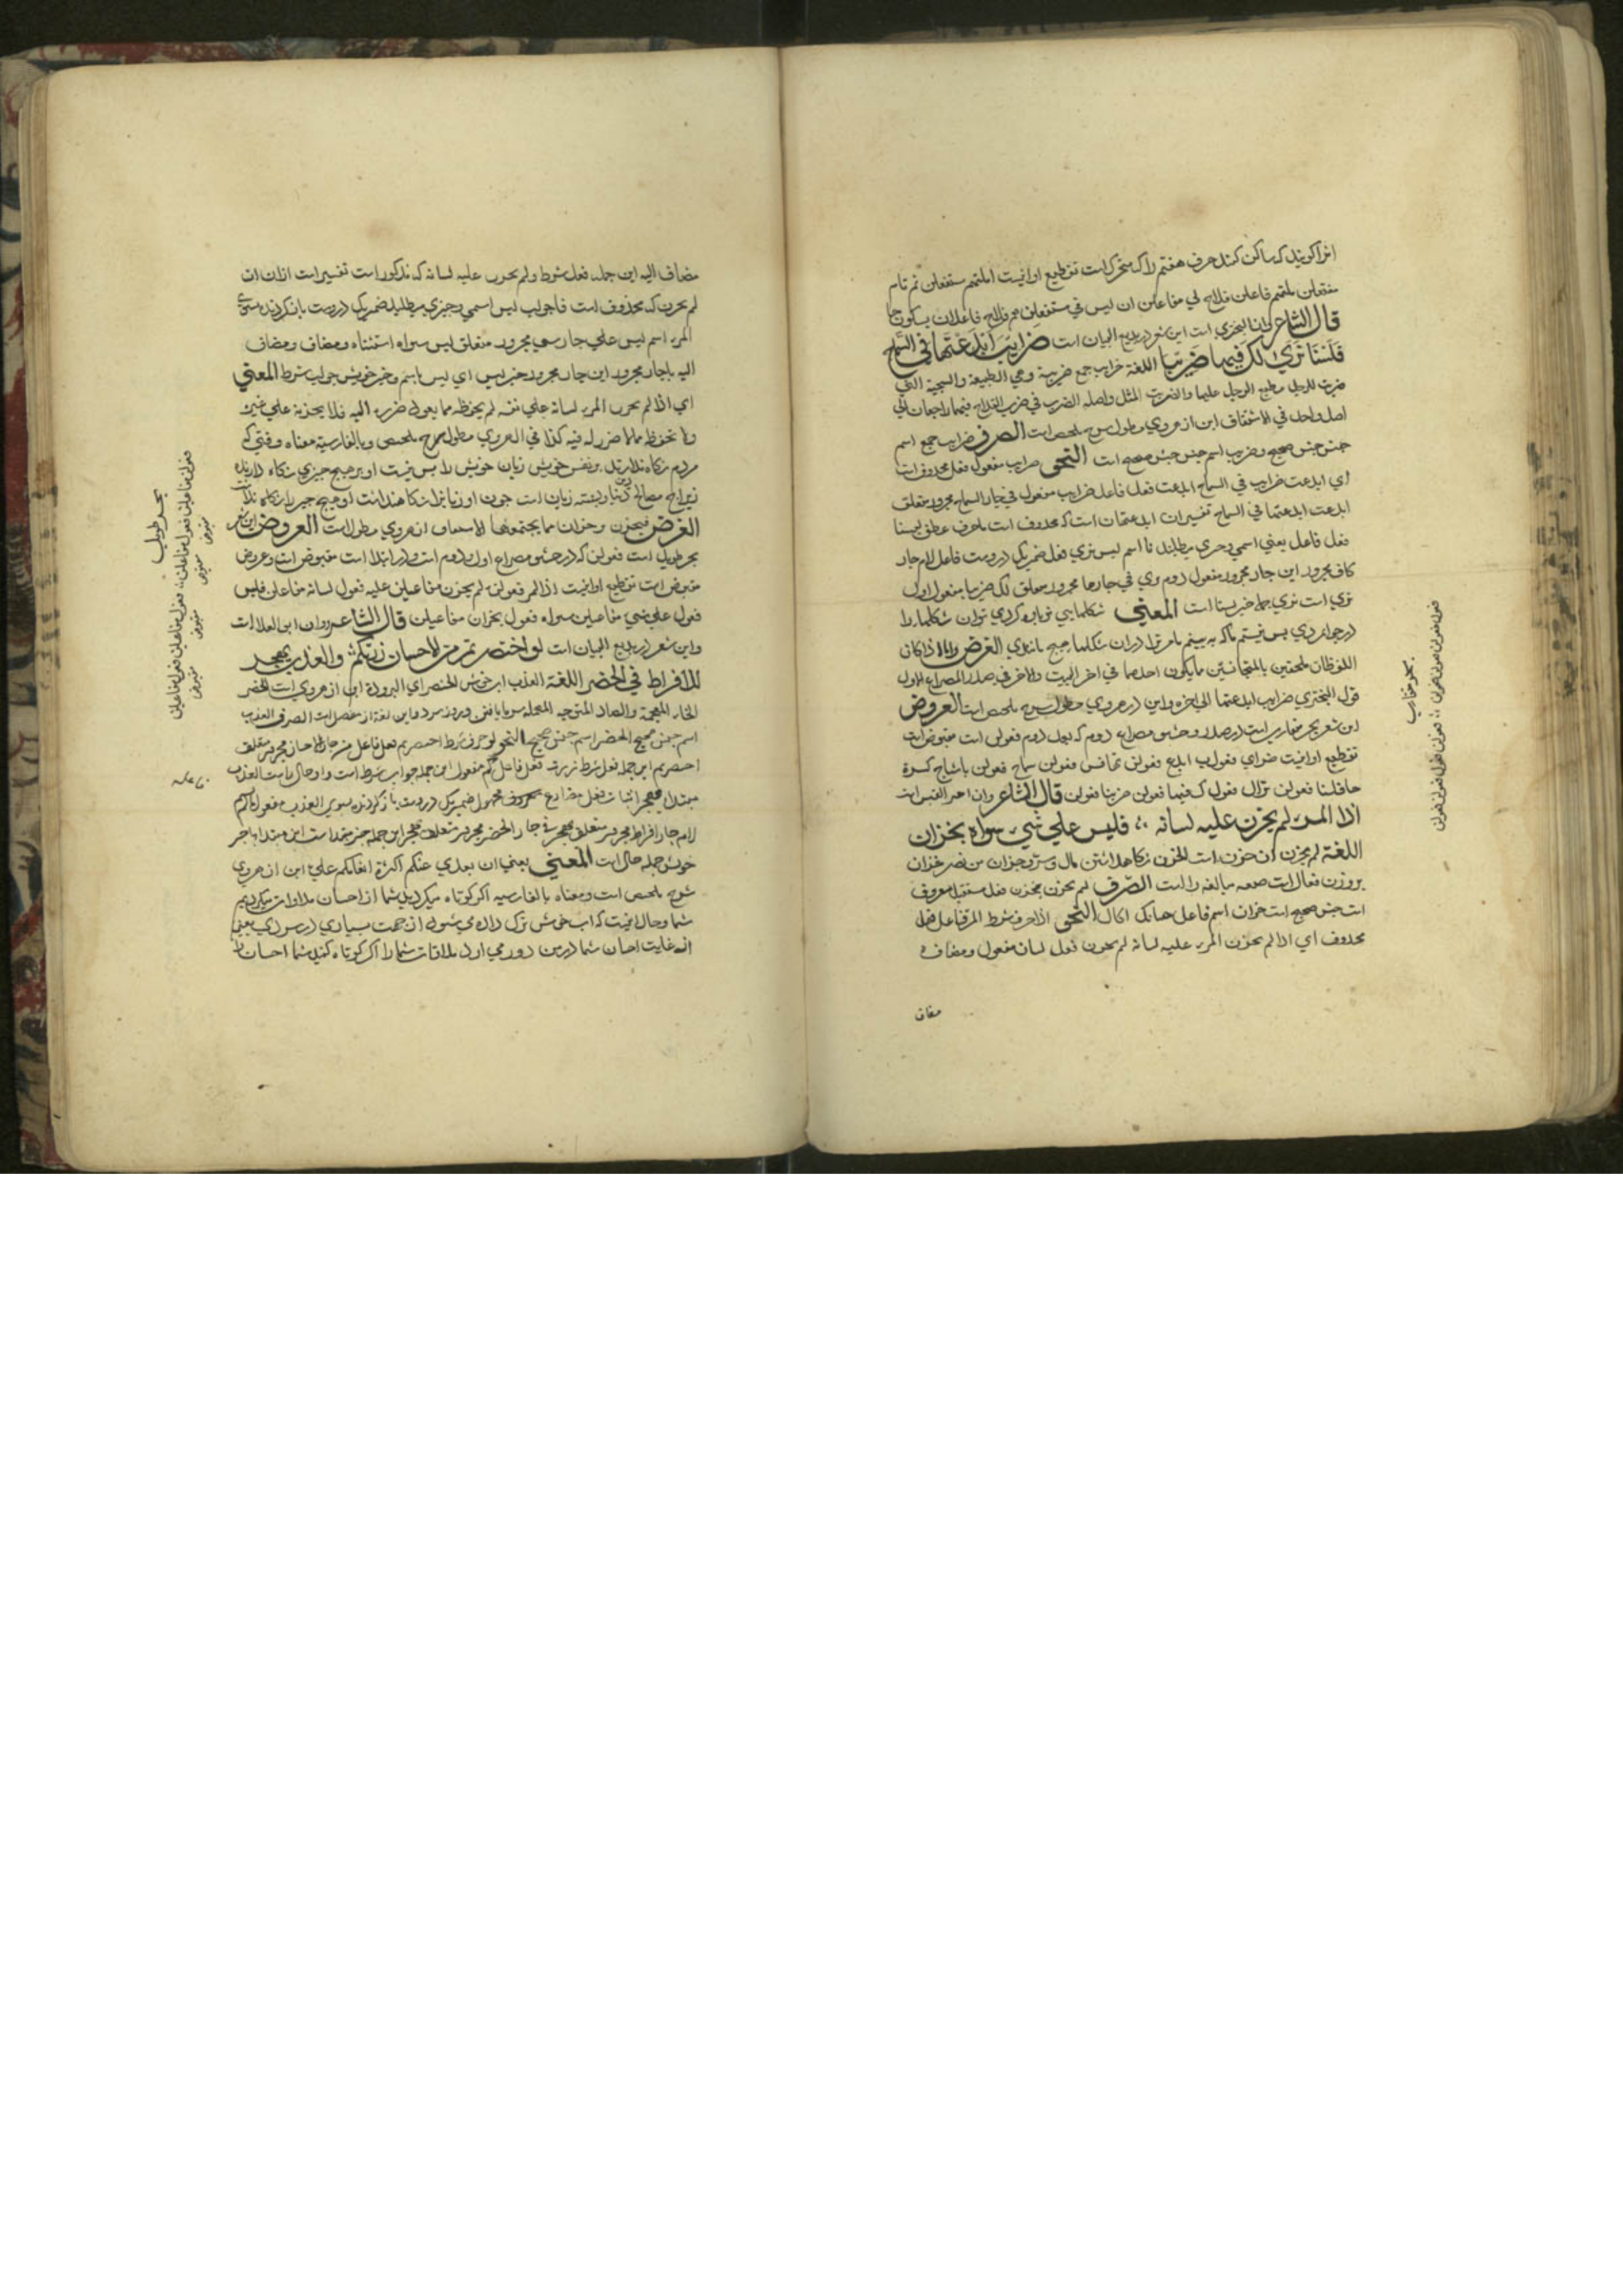 انرا گویند که ساکن کند حرف هفتم را که متحرکست تقطیع او اینست
مفتعلن فاعلن فلاح لي مفاعلن ان ليس في مستفعلن فاعلان
قال الشاعر این شعر در بدیع البیان است ضرایب ابدعتها في السماح
فلسنا نري لك فيها ضريبا اللغة ضرایب جمع ضریبة وهي الطبيعة والسجية التي
ضربت للرجل وطبع الرجل عليها والضریب المثل واصله الضرب في ضرب القداح فهما راجعان الي
اصل واحد في الاشتقاق این از هروي مطول شرح ملخص است الصرف ضرایب جمع اسم
جنس صحیح ضریب اسم جنس صحیح است النحو ضرایب مفعول فعل محذوف است
اي ابدعت ضرایب في السماح ابدعت فعل فاعل ضرایب مفعول في جار السماح مجرور متعلق
ابدعت ابدعتها في السماح تفسیر ان ابدعتها است که محذوف است فا حرف عطف لسنا
فعل فاعل یعني اسمي وخبري میطلبد نا اسم لیس نري فعل ضمیر یک دروست فاعل لام جار
کاف مجرور این جار مجرور مفعول دوم نري في جار ها مجرور متعلق لك ضریبا مفعول اول
نري است نري جمله خبر لسنا است المعني
در جوانمردي پس نیستیم ما که به بینیم مر ترا دران شکلها هیچ مانندي الغرض
اللفظان الملحقین بالمتجانسین ما یکون احدهما في اخر البیت والاخر في صدر المصراع الاول
قول البحتري ضرایب ابدعتها الي اخره واین در هروي مطول شرح ملخص است العروض
این شعر بحر متقارب است در صدر وحشو مصراع دوم که فعول دوم فعولن است مقبوض است
تقطیع او اینست ضراي فعول ب ابدع فعولن تهافس فعولن سماح فعولن باشباع کسرة
حا فلسنا فعولن نرال فعول ک فیها فعولن ضریبا فعولن قال الشاعر وان امرء القیس است
اذا المرء لم يخزن عليه لسانه ؞ فليس علي شيء سواه بخزان
اللغة لم یخزن ان خزن است الخزن نگاهداشتن مال وسر وخزان من نصر خزان
بروزن فعال است صیغه مبالغه را است الصرف لم یخزن یخزن فعل مستقبل معروف
است جنس صحیح است خزان اسم فاعل النحو اذا حرف شرط المرء فاعل فعل
محذوف اي اذا لم یخزن المرء علیه لسانه لم یخزن فعل لسان مفعول ومضاف ه
مضاف
بحر متقارب
فعولن فعولن فعولن فعولن ؞ فعولن فعولن فعولن فعولن
مضاف الیه این جمله فعل شرط ولم یخزن علیه لسانه که مذکور است تفسیر است ازان ان
لم یخزن که محذوف است فا جواب لیس اسمي وخبري میطلبد ضمیر یک دروست باز گردنده بسوي
المرء اسم لیس علي جار شيء مجرور متعلق لیس سواه استثناء ومضاف ومضاف
الیه با جار مجرور این جار مجرور خبر لیس اي لیس با اسم وخبر خویش جواب شرط المعني
اي اذا لم یخزن المرء لسانه علي نفسه لم یحفظه مما یعود ضرره الیه فلا یخزنه علي غیره
ولا یحفظه مما لا ضرر له فیه کذا في الهروي مطول شرح ملخص وبالفارسیة معناه وقتي که
مردم نگاه ندارند بر نفس خویش زبان خویش را پس نیست او بر هیچ چیزي نگاه دارنده
زیراچه مصالح دیني ودنیا وبسته زبان است چون او زبانرا نگاه نداشت او هیچ چیز را نگاه ندارد
الغرض فیخزن وخزان مما یجمعهما الاشتقاق از هروي مطول است العروض این شعر
بحر طویل است فعولن که در حشو مصراع اول ودوم است ودر ابتدا است مقبوض است وعروض
مقبوض است تقطیع او اینست اذا المر فعولن ء لم یخزن مفاعیلن علیه فعول لسانه مفاعلن فلیس
فعول علي شيء مفاعیلن سواه فعول بخزان مفاعیلن قال الشاعر وان ابي العلا است
واین شعر در بدیع البیان است لو اختصرتم من الاحسان زرتكم ؞ والعذب يهجر
للافراط في الخصر اللغة العذب اب خوش الخصر اي البرودة این از هروي است الخصر
الخاء المعجمة والصاد المتوجیه المهملة سرما یافتن وروز سرد واین لغة از مفصل است الصرف العذب
اسم جنس صحیح الخصر اسم جنس صحیح النحو لو حرف شرط اختصرتم فعل فاعل من جار الاحسان مجرور متعلق
اختصرتم این جمله فعل شرط زرت فعل فاعل کم مفعول این جمله جواب شرط است واو حال است العذب
مبتدا یهجر اثبات فعل مضارع معروف مجهول ضمیر یک دروست باز گردنده بسوي العذب
لام جار افراط مجرور متعلق یهجر في جار الخصر مجرور متعلق یهجر این جمله خبر مبتدا است این مبتدا با خبر
خویش جمله حال است المعني یعني ان بعدي عنکم لکثرة انعامکم علي این از هروي
شرح ملخص است ومعناه بالفارسیه اگر کوتاه میکردید شما از احسان ملاقات میکردیم
شما وحال اینست که اب خوش ترک داده مي شود از جهت بسیاري در سردي یعني
از غایت احسان شما در من دور مي اورد ملاقات شما را اگر کوتاه کنید شما احسان را
بحر طویل
فعولن مفاعیلن فعول مفاعلن ؞ فعول مفاعیلن فعول مفاعیلن
مقبوض مقبوض مقبوض مقبوض